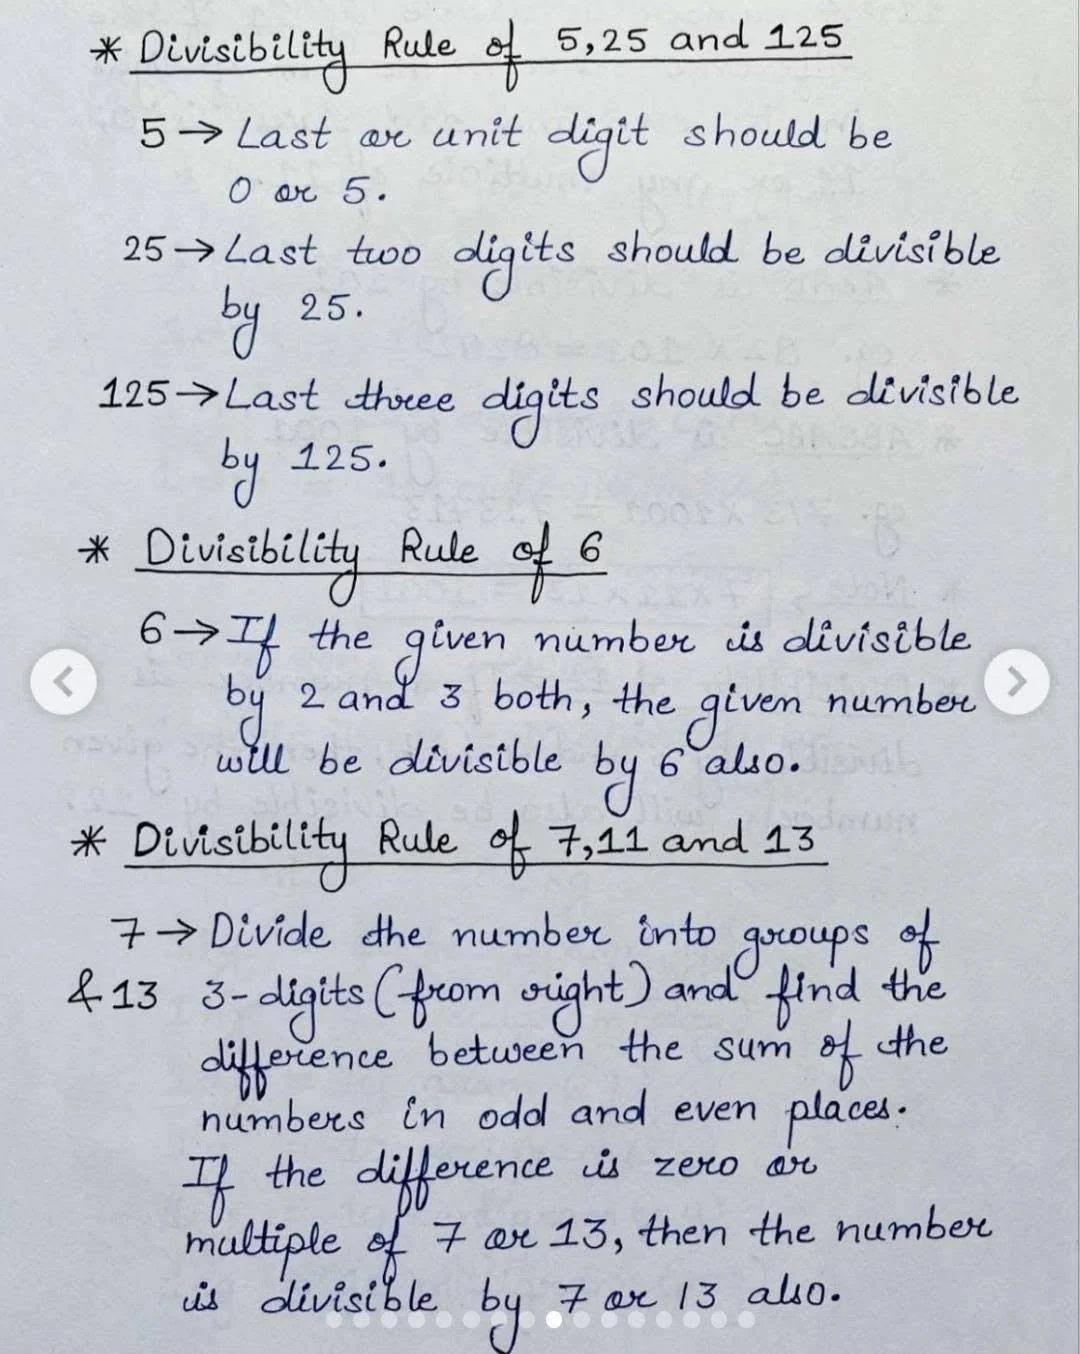 * Divisibility Rule of 5,25 and 125
5 → Last or unit digit should be
0 or 5.
25 → Last two digits should be divisible
by 25.
125 → Last three digits should be divisible
by 125.
* Divisibility Rule of 6
6 → If the given number is divisible
by 2 and 3 both, the given number
will be divisible by 6 also.
* Divisibility Rule of 7,11 and 13
7 → Divide the number into groups of
& 13 3-digits (from right) and find the
difference between the sum of the
numbers in odd and even places.
If the difference is zero or
multiple of 7 or 13, then the number
is divisible by 7 or 13 also.